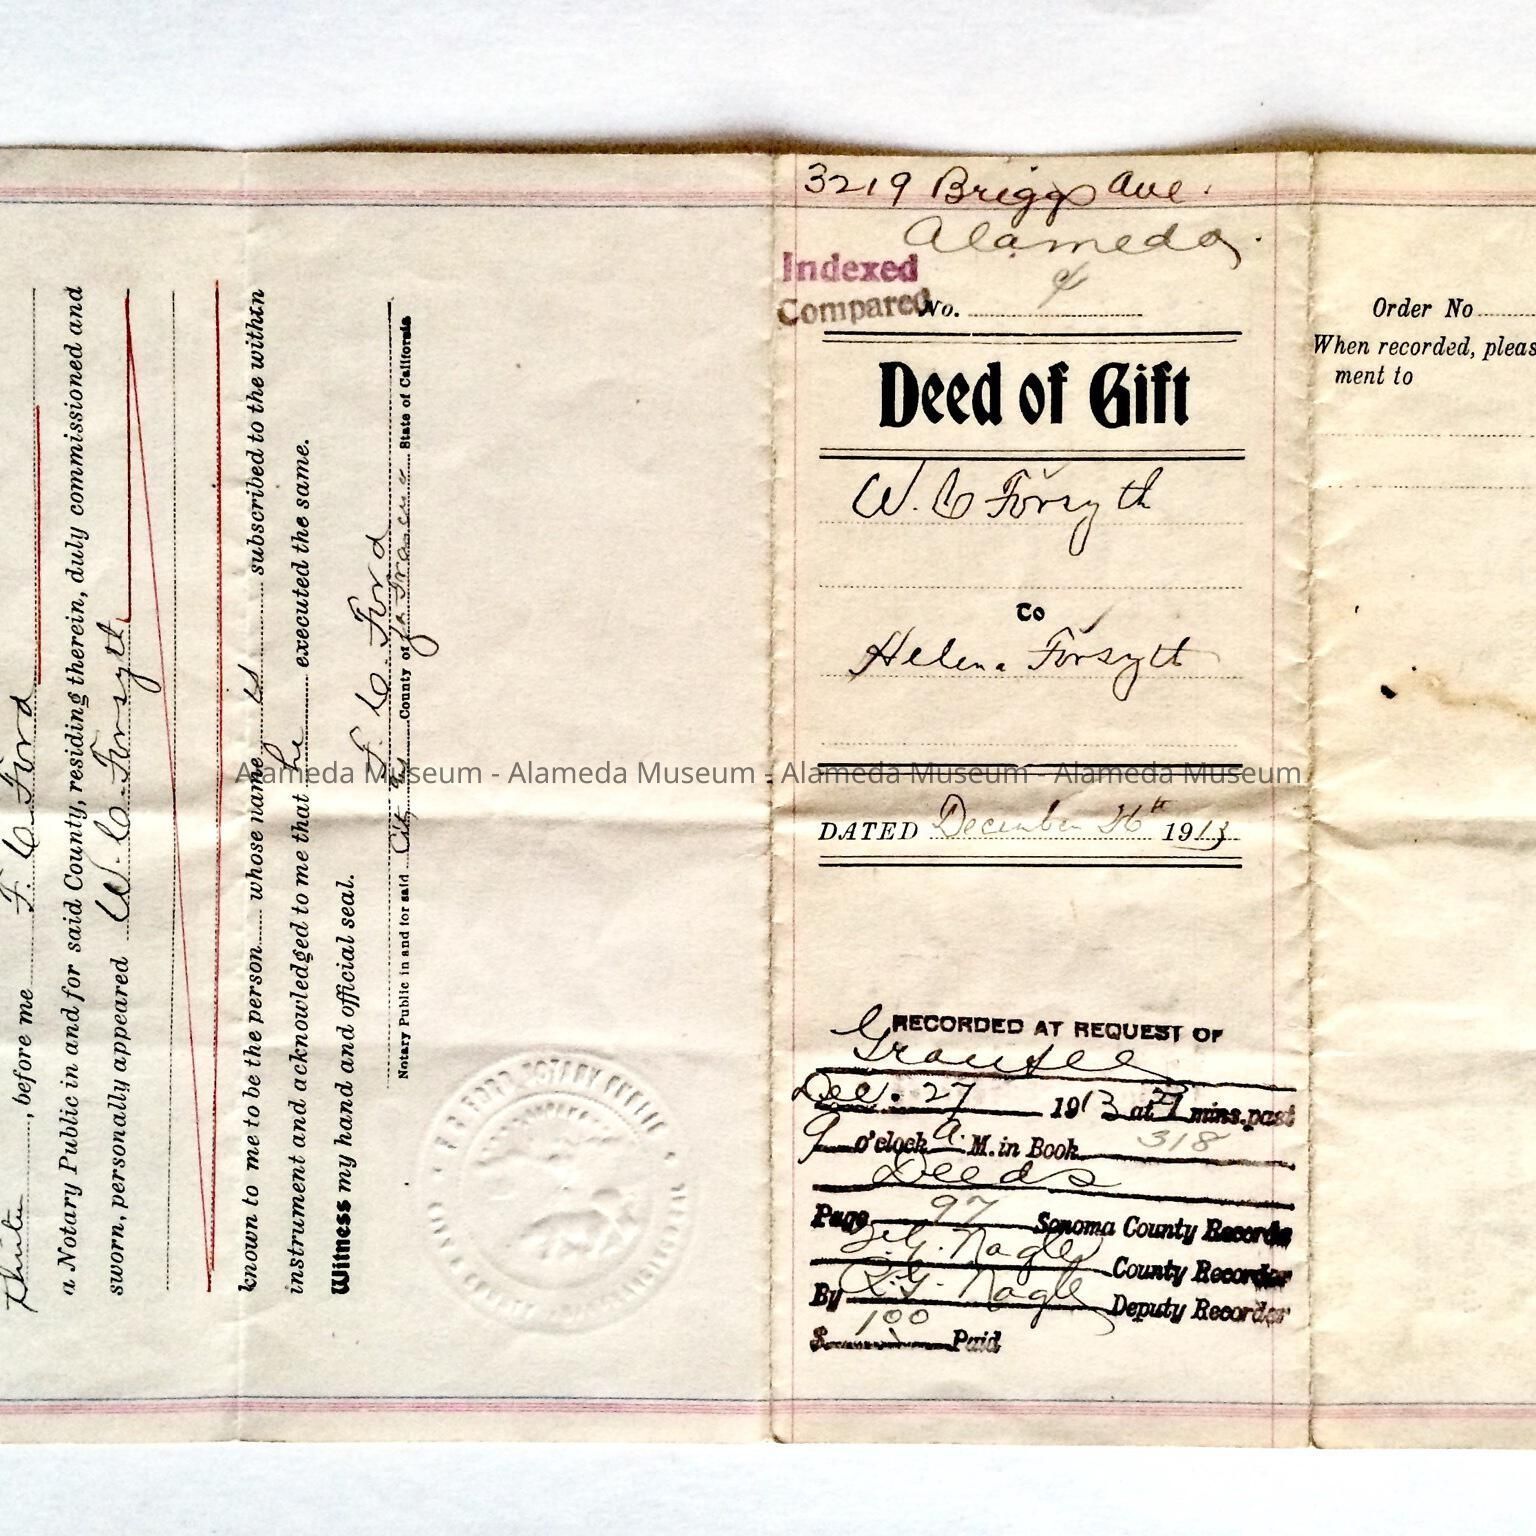 before me F. C. Ford
a Notary Public in and for said County, residing therein, duly commissioned and
sworn, personally appeared W. C. Forsyth
known to me to be the person whose name is subscribed to the within
instrument and acknowledged to me that he executed the same.
Witness my hand and official seal.
F. C. Ford
Notary Public in and for said City & County of San Francisco State of California
3219 Briggs Ave.
Alameda.
Indexed
Compared
No.
Deed of Gift
W. C. Forsyth
To
Helena Forsyth
Alameda Museum - Alameda Museum - Alameda Museum - Alameda Museum
DATED December 26th 1913
RECORDED AT REQUEST OF
Grantee
Dec. 27 1913 at 21 mins. past
9 o'clock A. M. in Book 318
Deeds
Page 97 Sonoma County Records
Nagle County Recorder
By Nagle Deputy Recorder
$ 1 00 Paid
Order No
When recorded, pleas
ment to